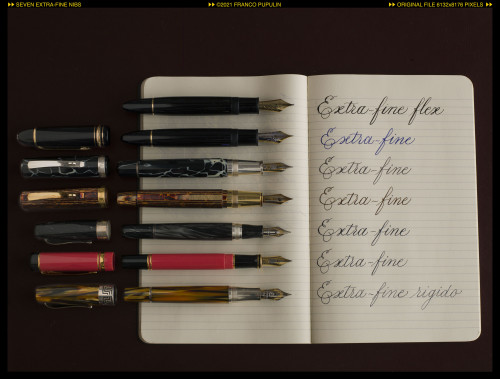 SEVEN EXTRA-FINE NIBS
©2021 FRANCO PUPULIN
ORIGINAL FILE 6132x8176 PIXELS
Extra-fine flex
Extra-fine
Extra-fine
Extra-fine
Extra-fine
Extra-fine
Extra-fine rigido